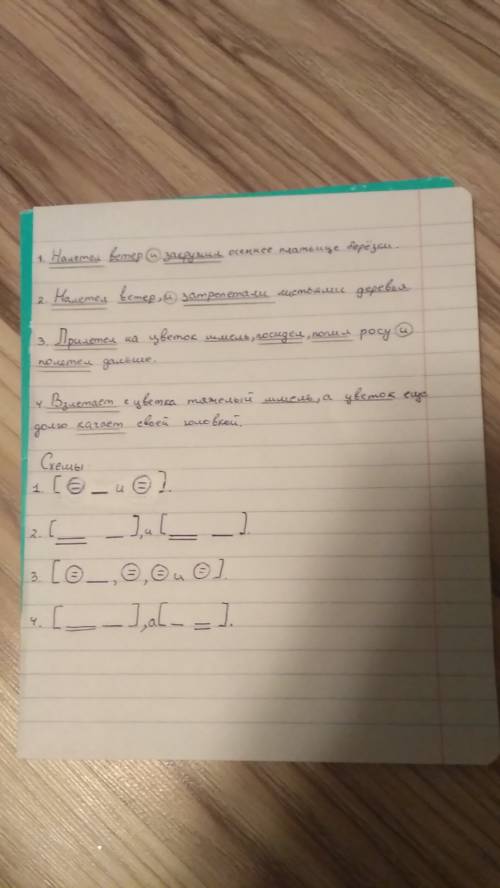 1. Налетел ветер и закружил осеннее платьице берёзки.
2. Налетел ветер, и затрепетали листьями деревья
3. Прилетел на цветок шмель, посидел, попил росу и
полетел дальше.
4. Взлетает с цветка тяжелый шмель, а цветок ещё
долго качает своей головкой.
Схемы
1. [ = _ и = ].
2. [ = _ ], и [ = _ ].
3. [ = _, =, = и = ].
4. [ = _ ], а [ _ = ].